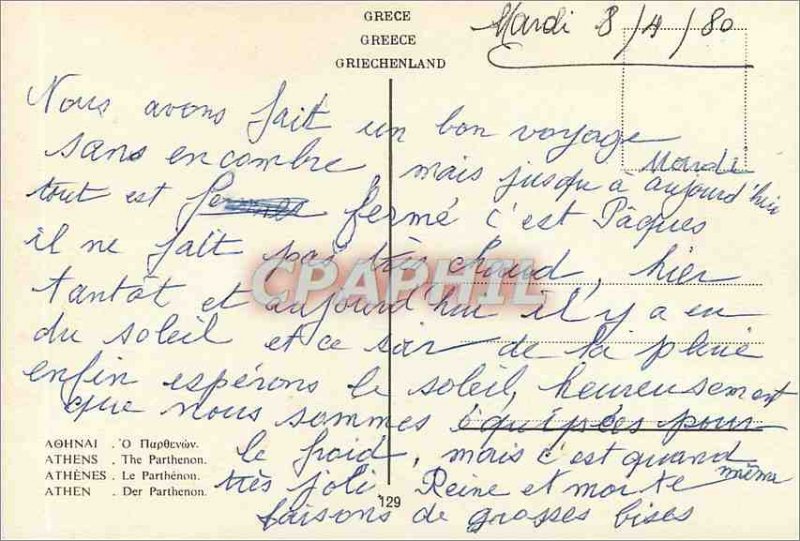 GRECE
GREECE
GRIECHENLAND
Mardi 8/4/80
Nous avons fait un bon voyage
sans encombre mais jusqu'à aujourd'hui
Mardi
tout est fermé c'est Pâques
il ne fait pas très chaud, hier
tantôt et aujourd'hui il y a eu
du soleil et ce soir de la pluie
enfin espérons le soleil, heureusement
que nous sommes équipées pour
le froid, mais c'est quand
même
très joli. Reine et
baisons de grosses bises
ΑΘΗΝΑΙ . Ὁ Παρθενών.
ATHENS . The Parthenon.
ATHÈNES . Le Parthénon.
ATHEN . Der Parthenon.
129
CPAPHIL